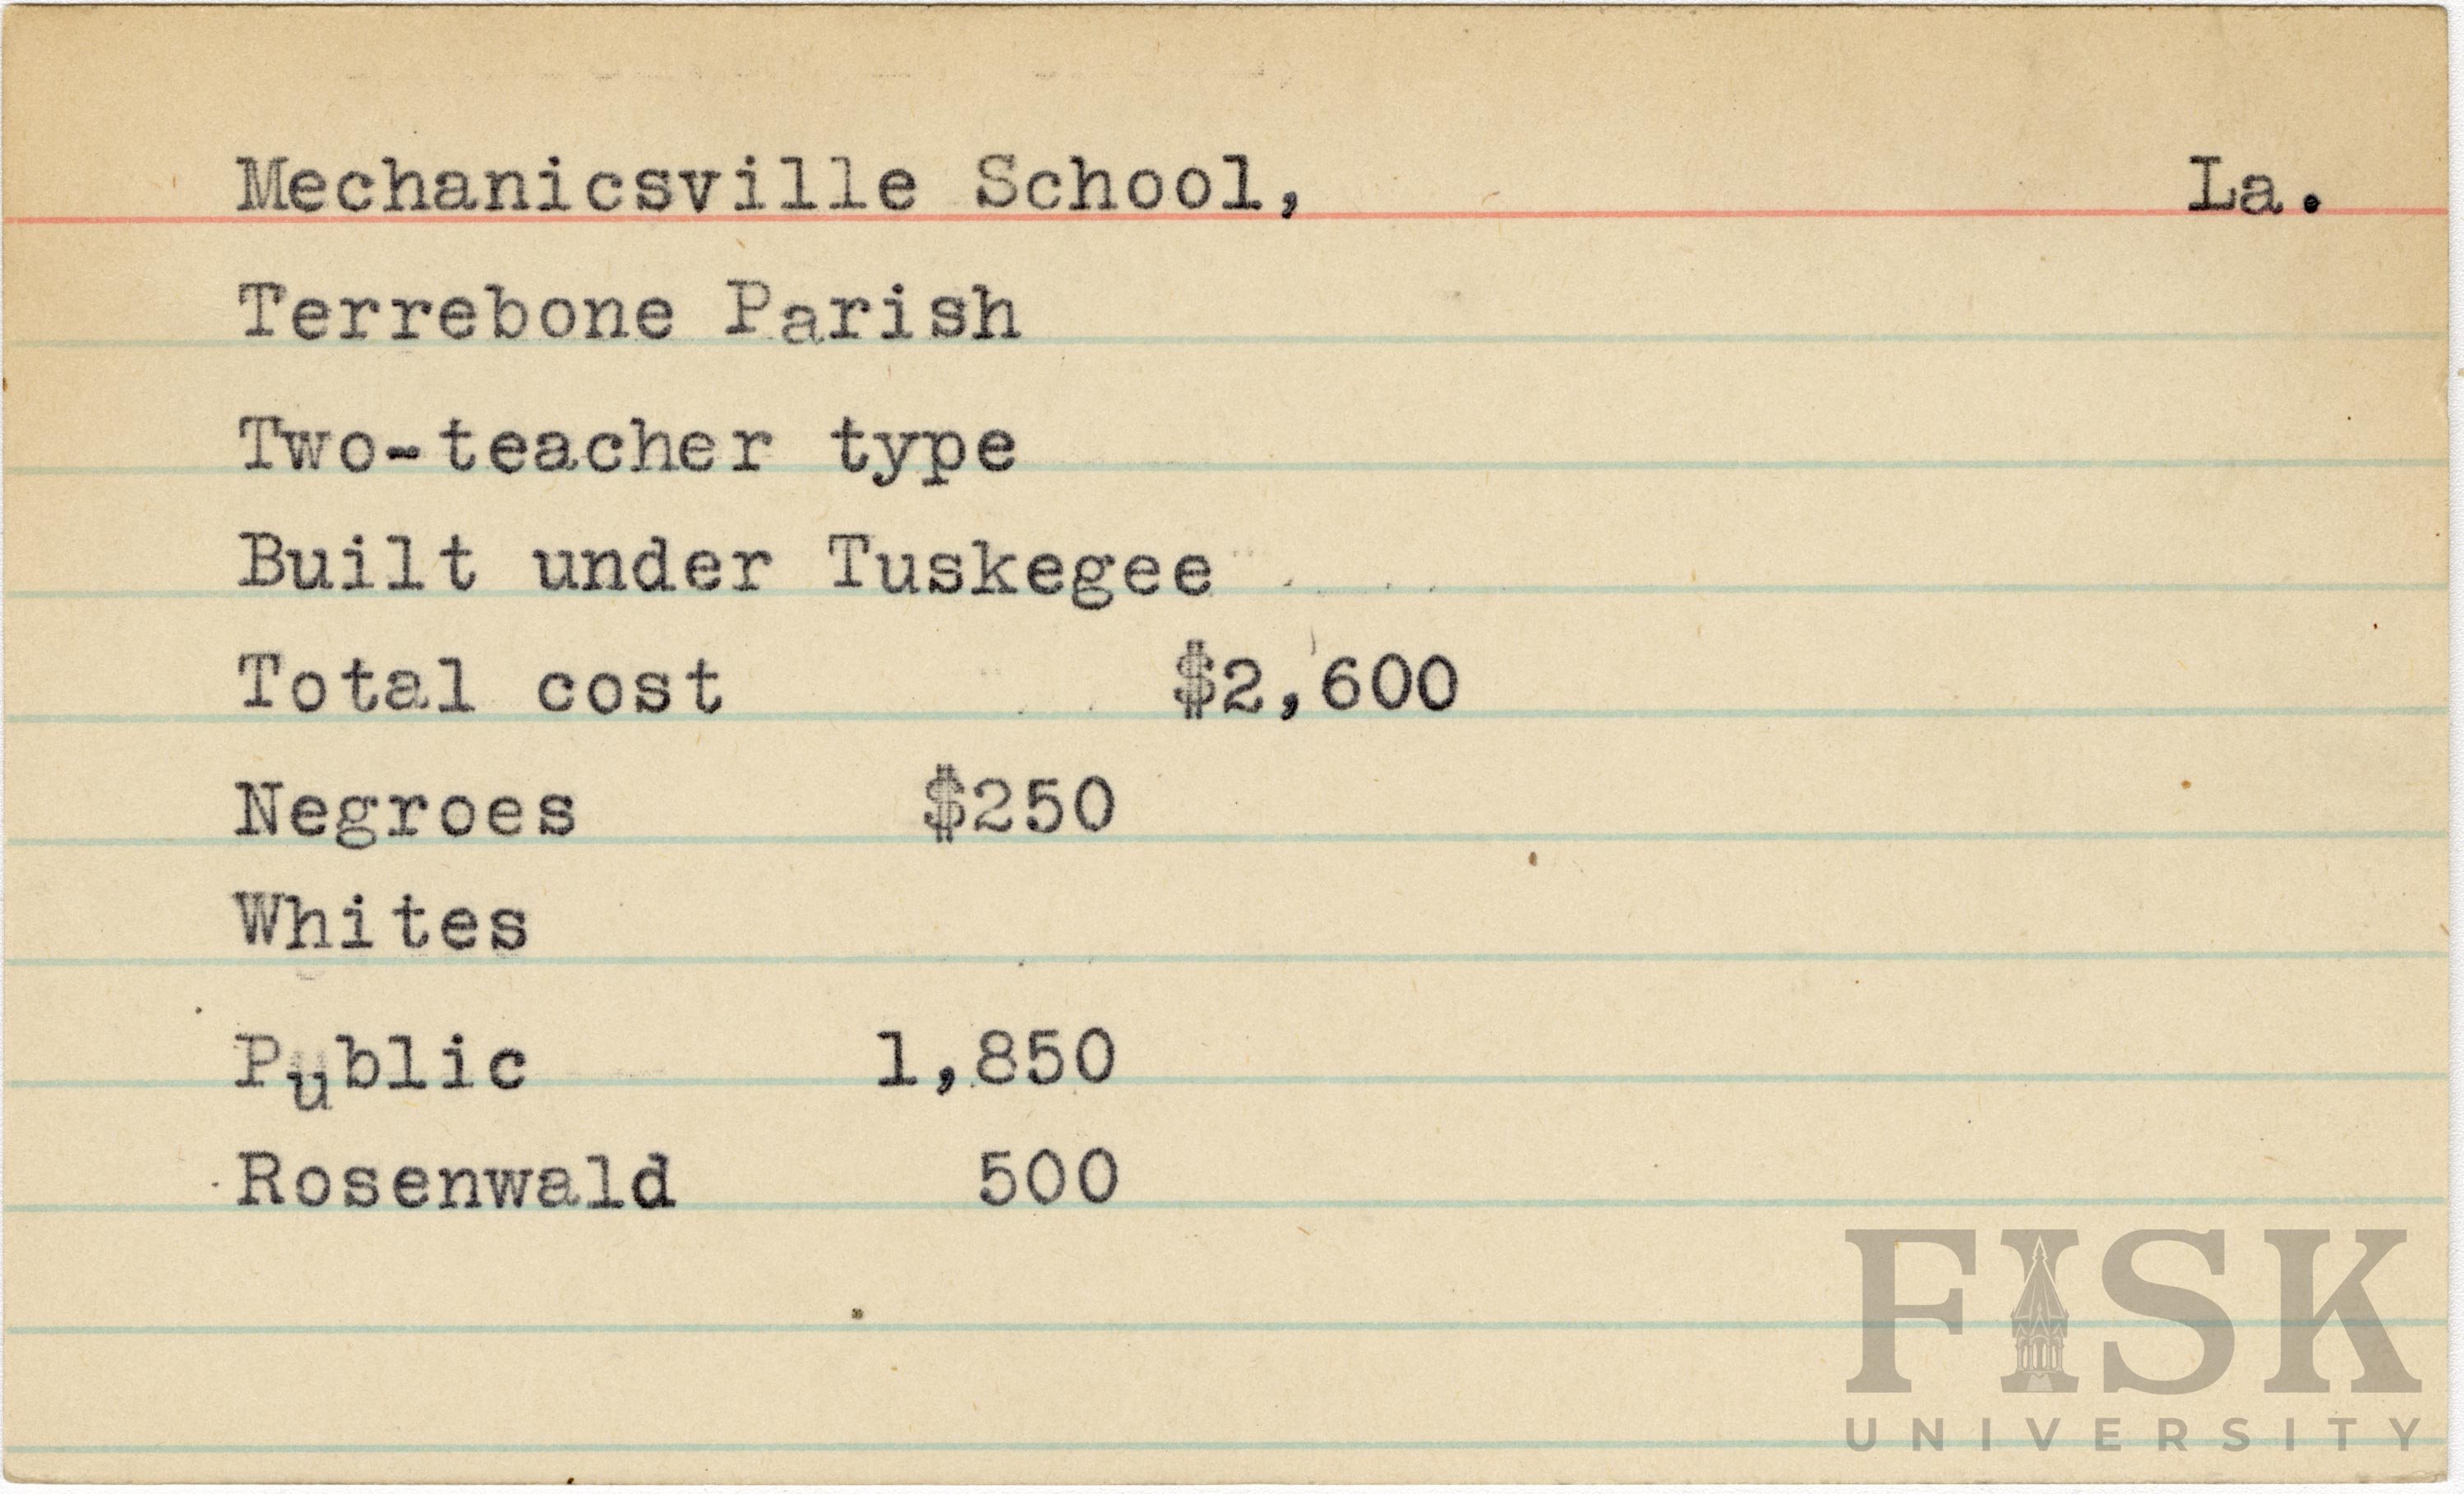 Mechanicsville School, La.
Terrebone Parish
Two-teacher type
Built under Tuskegee
Total cost $2,600
Negroes $250
Whites
Public 1,850
Rosenwald 500
FISK
UNIVERSITY